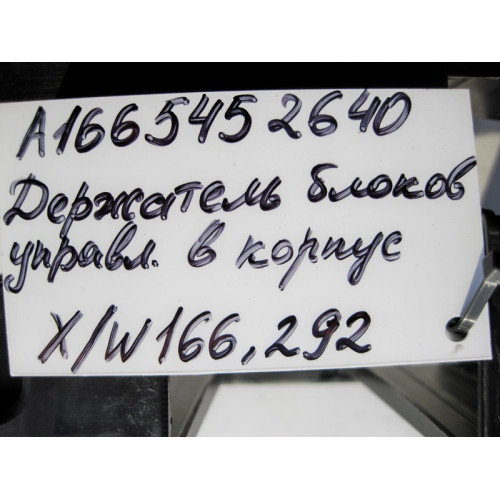 A1665452640
Держатель блоков
управл. в корпус
X/W166,292